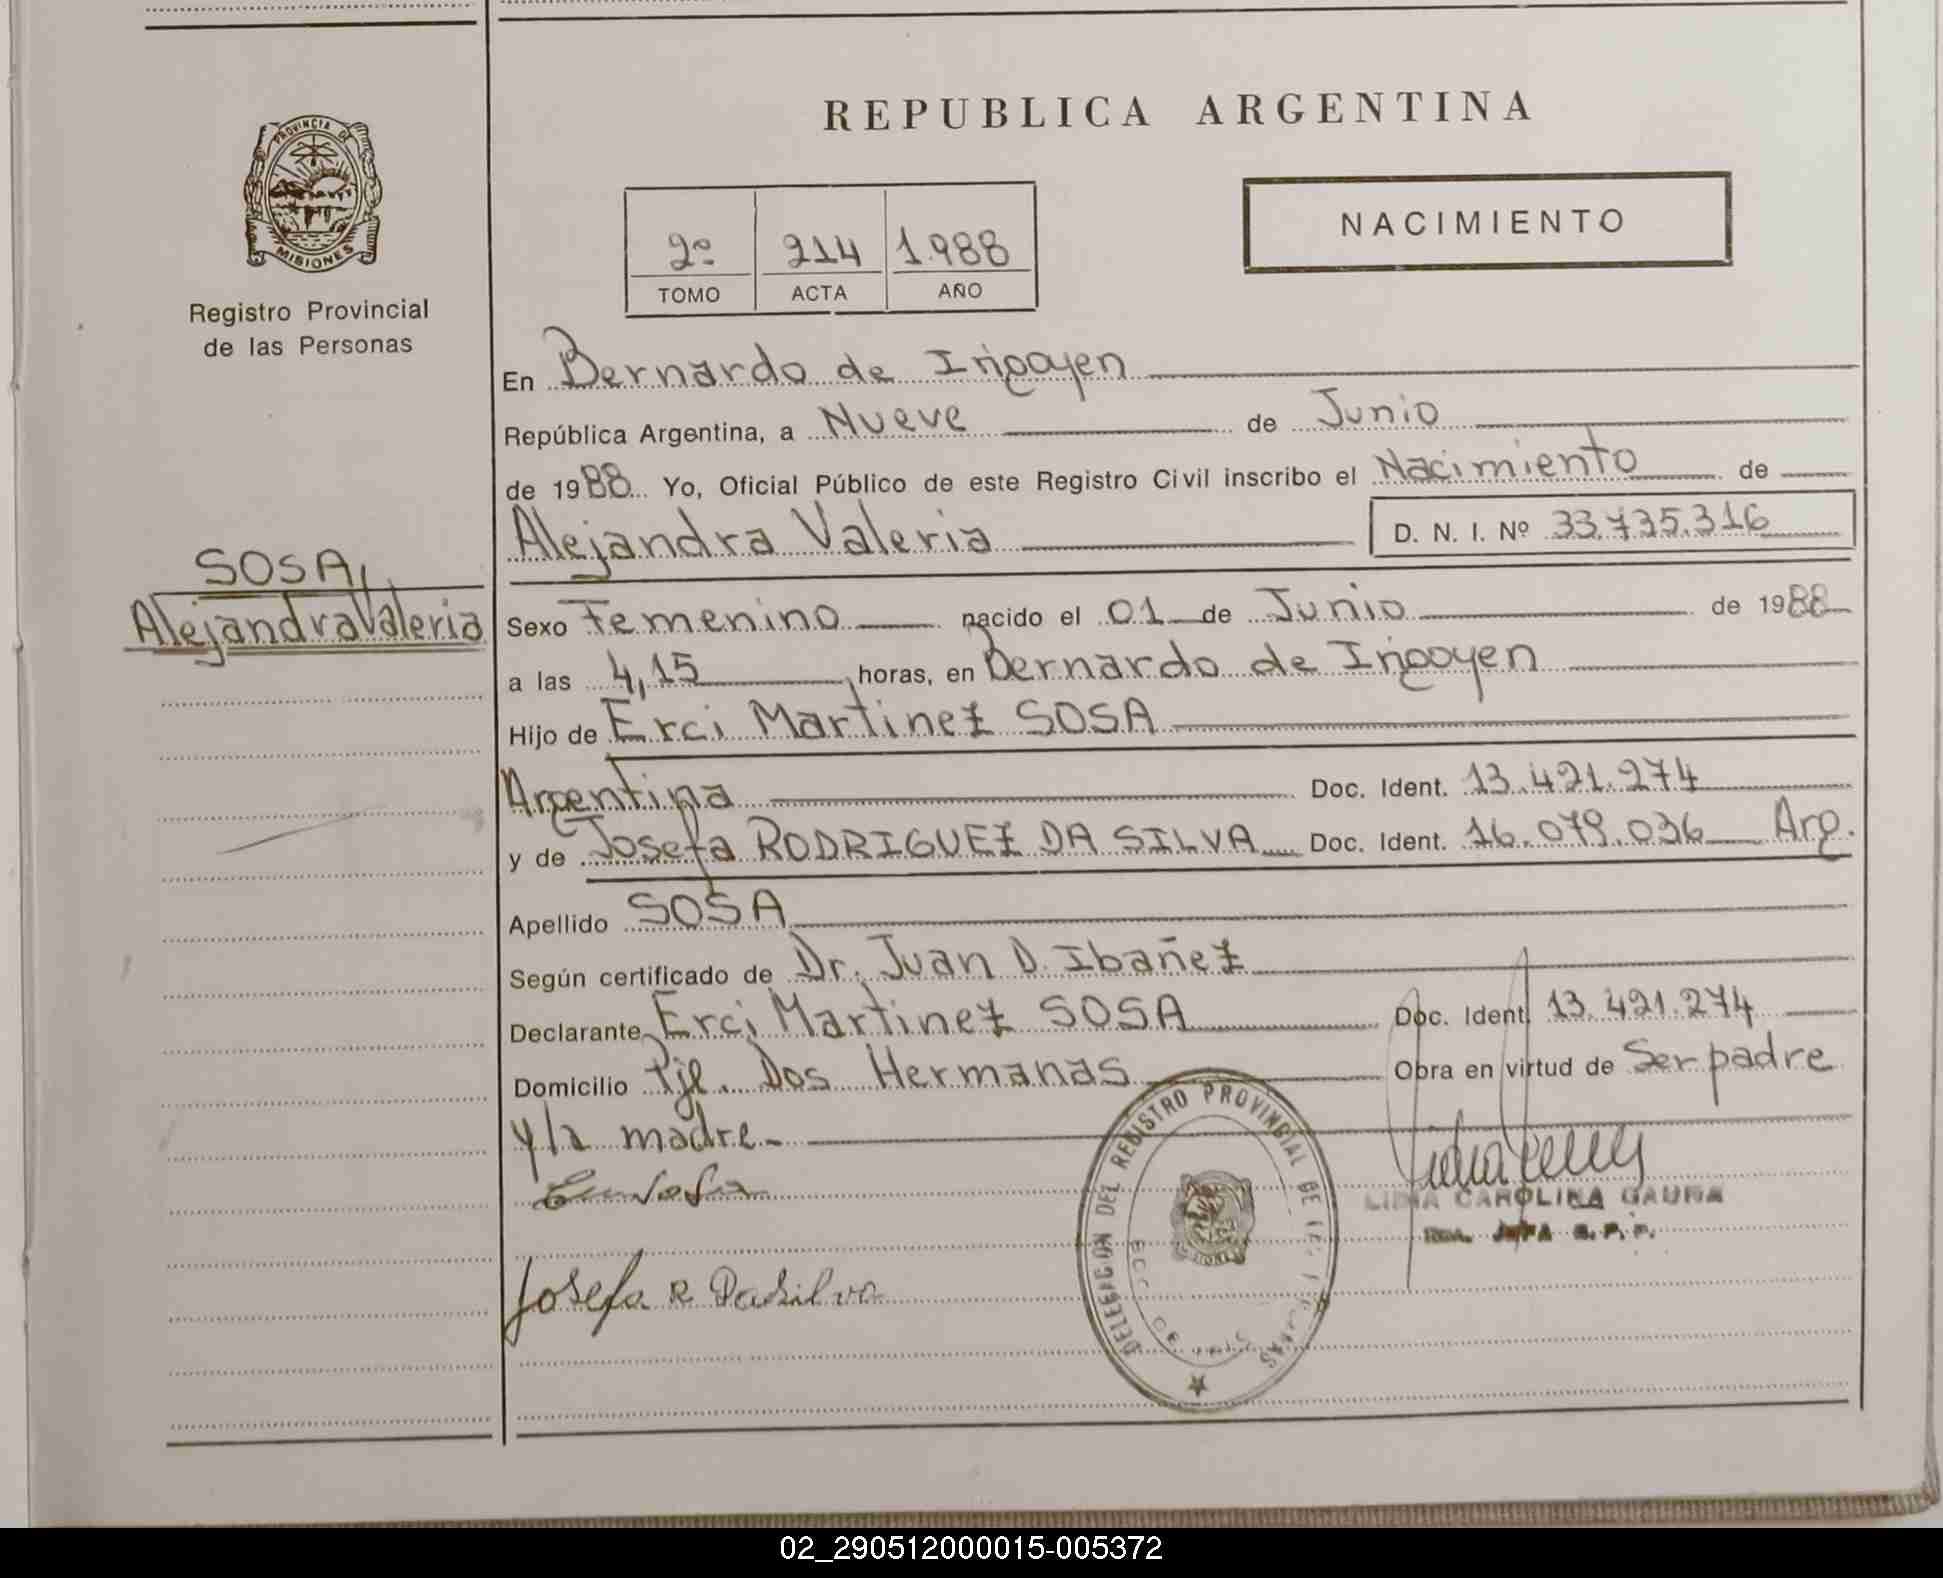 REPUBLICA ARGENTINA
PROVINCIA DE
MISIONES
Registro Provincial
de las Personas
NACIMIENTO
2º 214 1.988
TOMO ACTA AÑO
En Bernardo de Irigoyen
República Argentina, a Nueve de Junio
de 1988 Yo, Oficial Público de este Registro Civil inscribo el Nacimiento de
Alejandra Valeria D. N. I. Nº 33.735.316
SOSA,
Alejandra Valeria
Sexo Femenino nacido el 01 de Junio de 1988
a las 4,15 horas, en Bernardo de Irigoyen
Hijo de Erci Martinez SOSA
Argentina Doc. Ident. 13.421.274
y de Josefa RODRIGUEZ DA SILVA Doc. Ident. 16.079.036 Arg.
Apellido SOSA
Según certificado de Dr. Juan D. Ibañez
Declarante Erci Martinez SOSA Doc. Ident. 13.421.274
Domicilio Pje. Dos Hermanas Obra en virtud de Ser padre
y la madre.-
DELEGACION DEL REGISTRO PROVINCIAL DE
LIDIA CAROLINA
Josefa R Dasilva
02_290512000015-005372